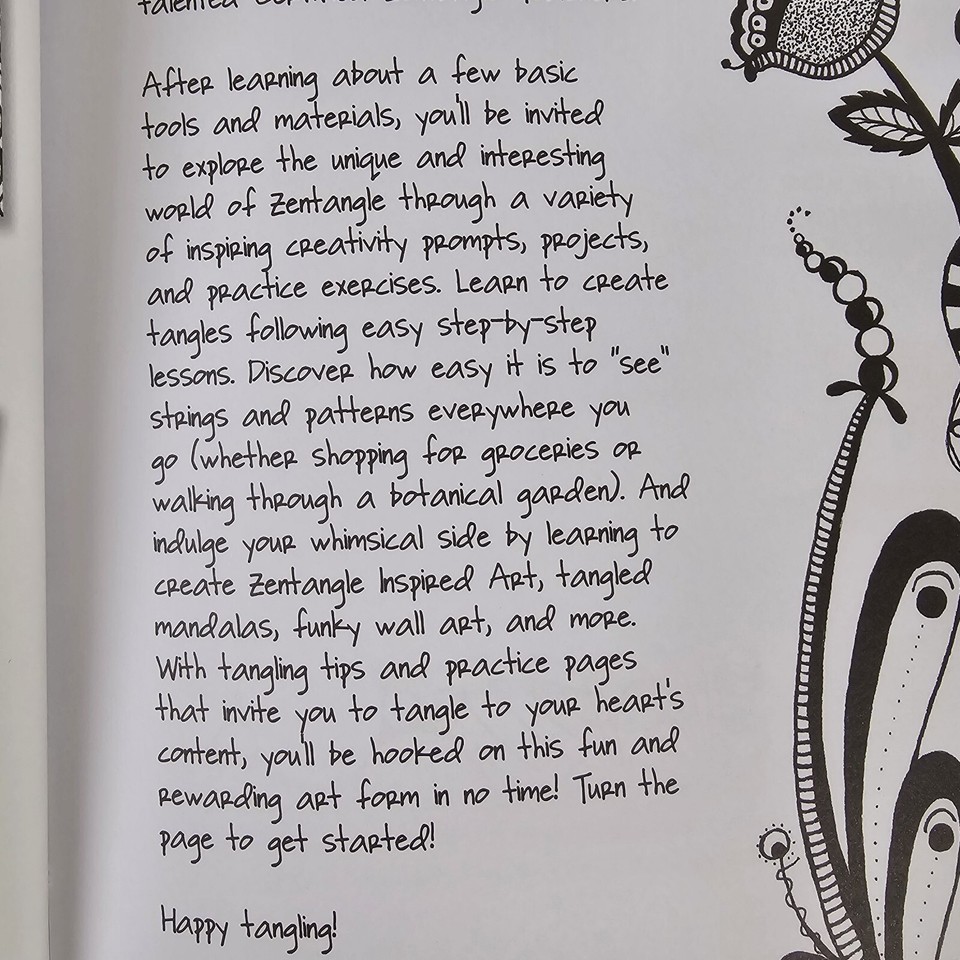 talented
After learning about a few basic
tools and materials, you'll be invited
to explore the unique and interesting
world of Zentangle through a variety
of inspiring creativity prompts, projects,
and practice exercises. Learn to create
tangles following easy step-by-step
lessons. Discover how easy it is to "see"
strings and patterns everywhere you
go (whether shopping for groceries or
walking through a botanical garden). And
indulge your whimsical side by learning to
create Zentangle Inspired Art, tangled
mandalas, funky wall art, and more.
With tangling tips and practice pages
that invite you to tangle to your heart's
content, you'll be hooked on this fun and
rewarding art form in no time! Turn the
page to get started!
Happy tangling!